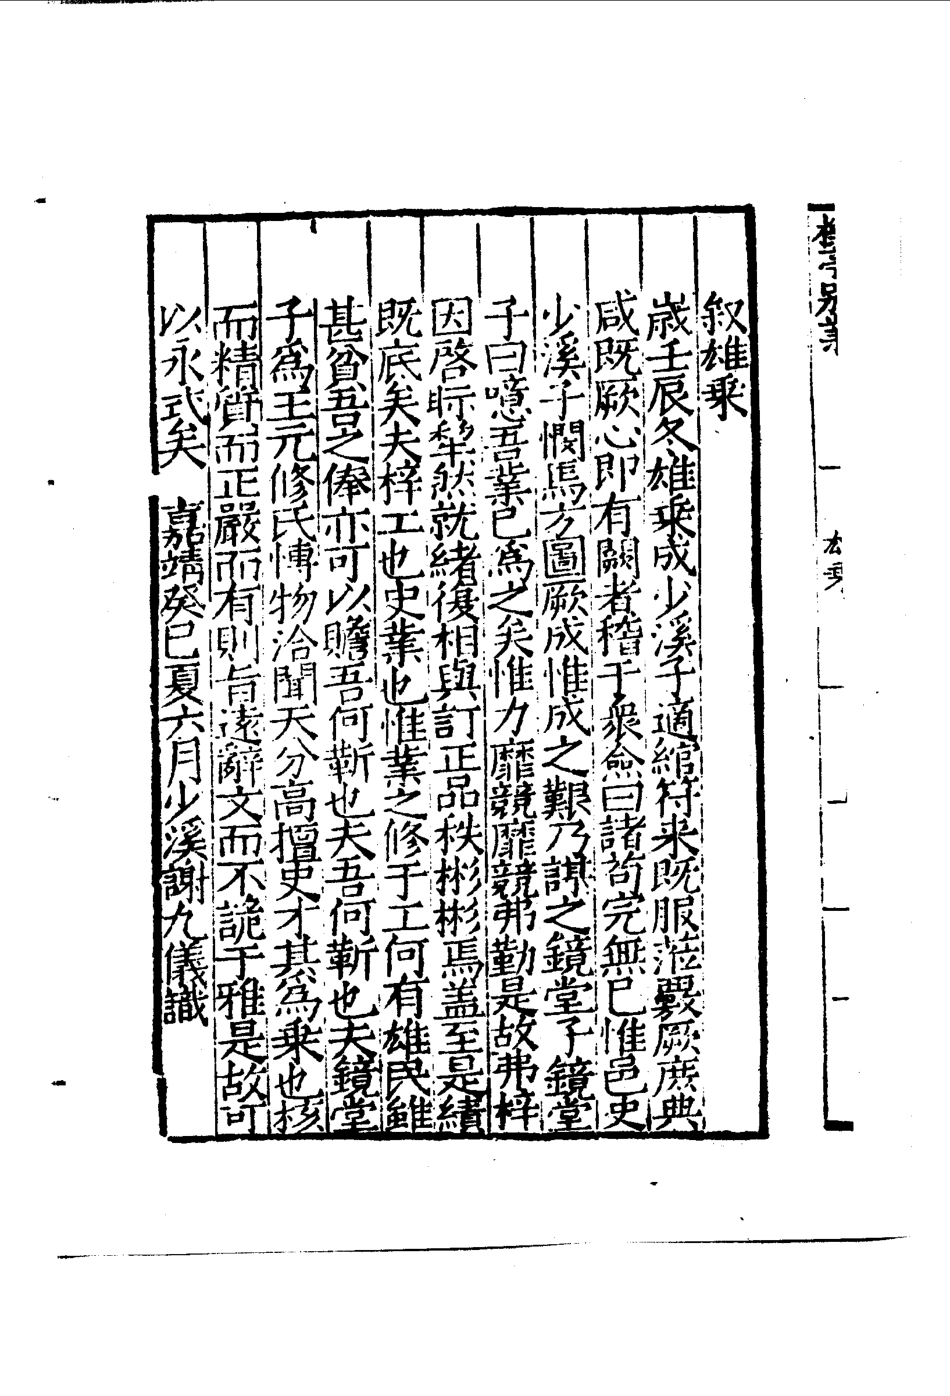 叙雄乗
歲壬辰冬雄乗成少溪子適綰符来既服蒞覈厥庶典
咸既厥心即有闕者稽于衆僉曰諸茍完無已惟邑史
少溪子憫焉方圖厥成惟成之艱乃謀之鏡堂子鏡堂
子曰噫吾業已爲之矣惟力靡競靡競弗勤是故弗梓
因啓眎犂然就緒復相與訂正品秩彬彬焉盖至是績
既底矣夫梓工也史業也惟業之修于工何有雄民雖
甚貧吾之俸亦可以贍吾何靳也夫吾何靳也夫鏡堂
子爲王元修氏博物洽聞天分高擅史才其爲乗也核
而精質而正嚴而有則旨遠辭文而不詭于雅是故可
以永式矣 嘉靖癸巳夏六月少溪謝九儀識
雄乗